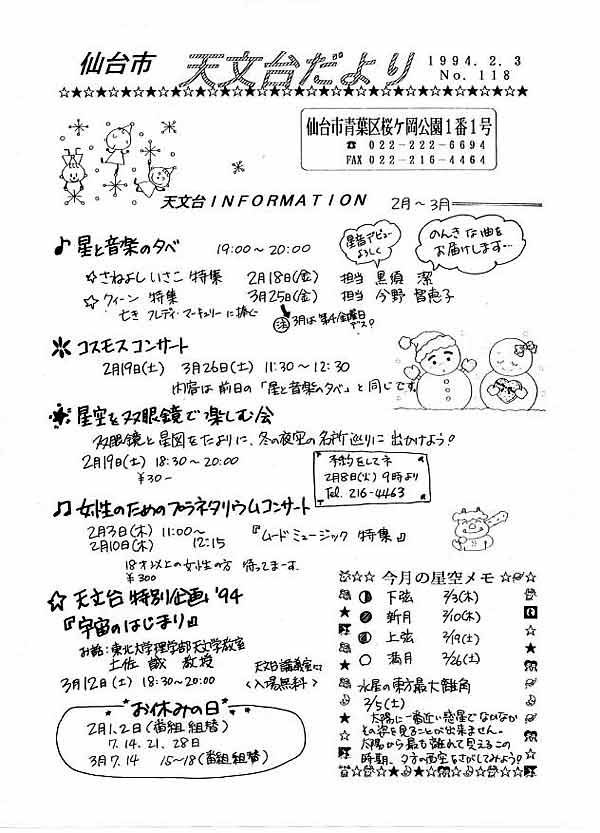 仙台市 天文台だより
1994.2.3
No.118
仙台市青葉区桜ケ岡公園1番1号
☎ 022-222-6694
FAX 022-216-4464
天文台INFORMATION 2月~3月
♪星と音楽の夕べ 19:00~20:00
星音デビュー
よろしく
のんきな曲を
お届けします…
☆さねよしいさこ特集 2月18日(金) 担当 黒須 潔
☆クィーン特集 3月25日(金) 担当 今野 智恵子
亡きフレディ・マーキュリーに捧ぐ
注 3月は第4金曜日
デス?
コスモスコンサート
2月19日(土) 3月26日(土) 11:30~12:30
内容は前日の「星と音楽の夕べ」と同じです
星空を双眼鏡で楽しむ会
双眼鏡と星図をたよりに、冬の夜空の名所巡りに出かけよう?
2月19日(土) 18:30~20:00
¥30-
予約をしてネ
2月8日(火) 9時より
Tel. 216-4463
♫女性のためのプラネタリウムコンサート
2月3日(木) 11:00~
2月10日(木) 12:15
『ムードミュージック特集』
18才以上の女性の方 待ってまーす.
¥300
☆天文台特別企画 '94
『宇宙のはじまり』
お話:東北大学理学部天文学教室
土佐 誠 教授
3月12日(土) 18:30~20:00
天文台講義室にて
<入場無料>
*お休みの日*
2月1.2日(番組組替)
7.14.21.28日
3月7.14 15~18(番組組替)
今月の星空メモ
下弦 2/3(木)
新月 2/10(木)
上弦 2/19(土)
満月 2/26(土)
水星の東方最大離角
2/5(土)
太陽に一番近い惑星でなかなか
その姿を見ることが出来ません。
太陽から最も離れて見えるこの
時期、夕方の西空をさがしてみよう?